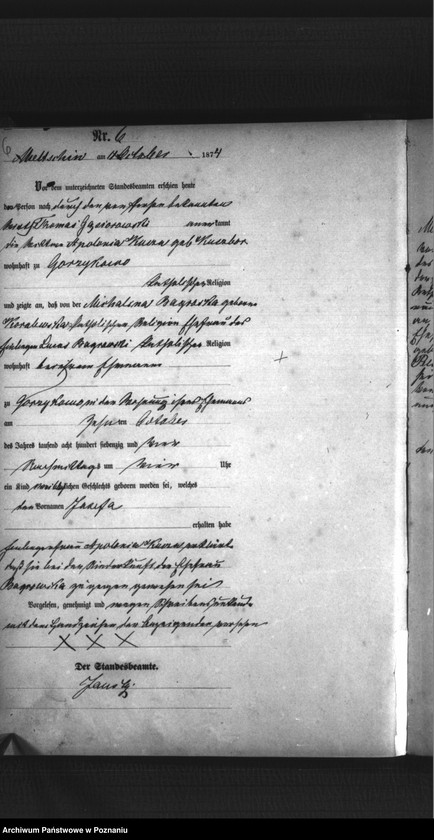 6
Nr. 6
Meltschin am 11 October 1874
Vor dem unterzeichneten Standesbeamten erschien heute
der Person nach durch den von Person bekannten
Thomas Gąsiorowski anerkannt
die Apolonia Kura geb
wohnhaft zu Gorzykowo
katholischer Religion
und zeigte an, daß von der Michalina Bagroska geborene
katholischer Religion Ehefrau des
Lucas Bagrowski katholischer Religion
wohnhaft bei ihrem Ehemann
zu Gorzykowo in der Wohnung ihres Ehemanns
am Zehn ten October
des Jahres tausend acht hundert siebenzig und vier
Nachmittags um vier Uhr
ein Kind weiblichen Geschlechts geboren worden sei, welches
den Vornamen Josefa
erhalten habe
Apolonia Kura, erklärt
daß sie bei der Niederkunft der Ehefrau
Bagrowska zugegen gewesen sei
Vorgelesen, genehmigt und wegen Schreibensunkunde
mit dem Handzeichen der Anzeigenden versehen
X X X
Der Standesbeamte.
Archiwum Państwowe w Poznaniu